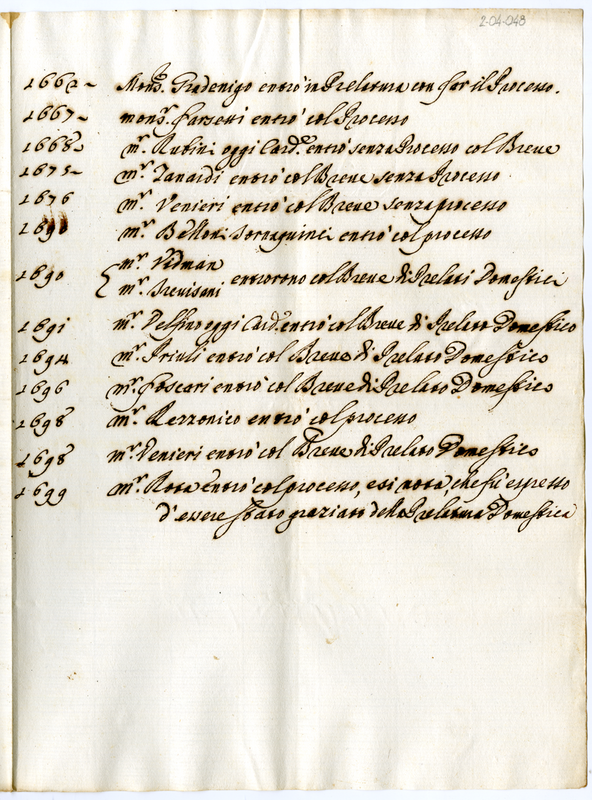 2-04-048
1662 Mons.r Gradenigo entrò in Prelatura con far il Processo.
1667 mons.r Farsetti entrò col Processo
1668 m.r Rubini oggi Card.e entrò senza Processo col Breve
1675 m.r Zanardi entrò col Breve senza Processo
1676 m.r Venieri entrò col Breve senza processo
m.r Bellori Sornaguinci entrò col processo
1690 { m.r Vidman
m.r Trevisani entrorono col Breve di Prelati Domestici
1691 m.r Delfino oggi Card. entrò col Breve di Prelato Domestico
1694 m.r Priuli entrò col Breve di Prelato Domestico
1696 m.r Foscari entrò col Breve di Prelato Domestico
1698 m.r Rezzonico entrò col processo
1698 m.r Venieri entrò col Breve di Prelato Domestico
1699 m.r Rota entrò col processo, e si nota, che fù espresso
d'essere stato graziato della Prelatura Domestica